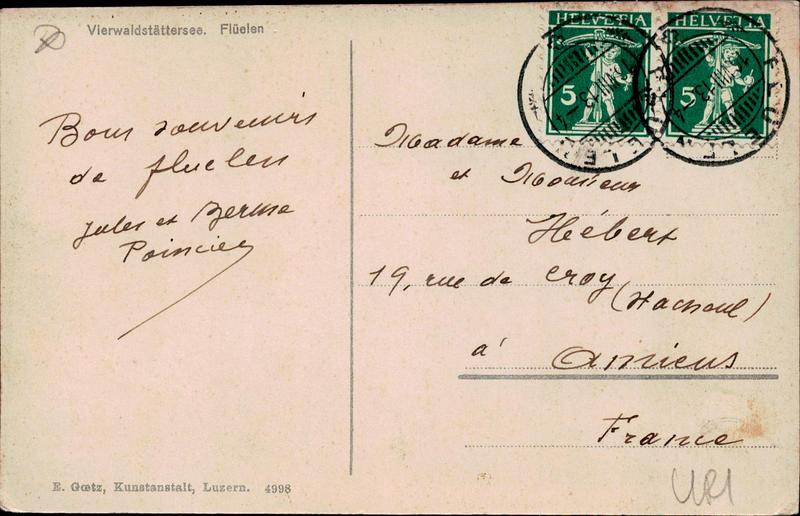 Vierwaldstättersee. Flüelen
HELVETIA HELVETIA
5 5
FLÜELEN
FLÜELEN
Bons souvenirs
de fluelen
Jules et Berthe
Madame
et Monsieur
Hébert
19, rue de Croy
à Amiens
France
E. Gœtz, Kunstanstalt, Luzern. 4998
URI